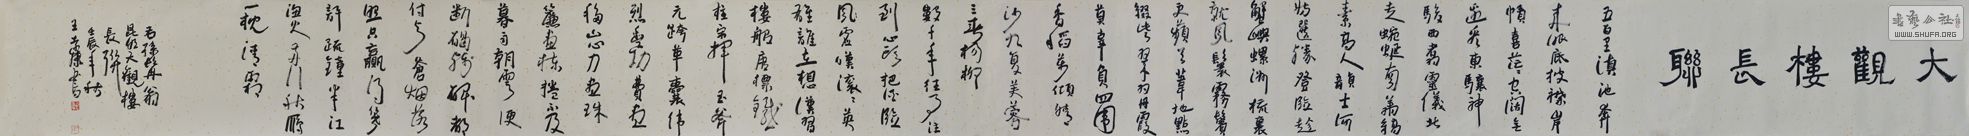 書藝公社
WWW.SHUFA.ORG
大觀樓長聯
五百里滇池奔
來眼底披襟岸
幘喜茫茫空闊無
邊看東驤神
駿西翥靈儀北
走蜿蜒南翔縞
素高人韻士何
妨選勝登臨趁
蟹嶼螺洲梳裹
就風鬟霧鬢
更蘋天葦地點
綴些翠羽丹霞
莫辜負四圍
香稻萬頃晴
沙九夏芙蓉
三春楊柳
數千年往事注
到心頭把酒凌
虛嘆滾滾英
雄誰在想漢習
樓船唐標鐵
柱宋揮玉斧
元跨革囊偉
烈豐功費盡
移山心力盡珠
簾畫棟捲不及
暮雨朝雲便
斷碣殘碑都
付與蒼煙落
照只贏得幾
杵疏鐘半江
漁火兩行秋雁
一枕清霜
右孫髯翁
昆明大觀樓
長聯
壬辰年秋